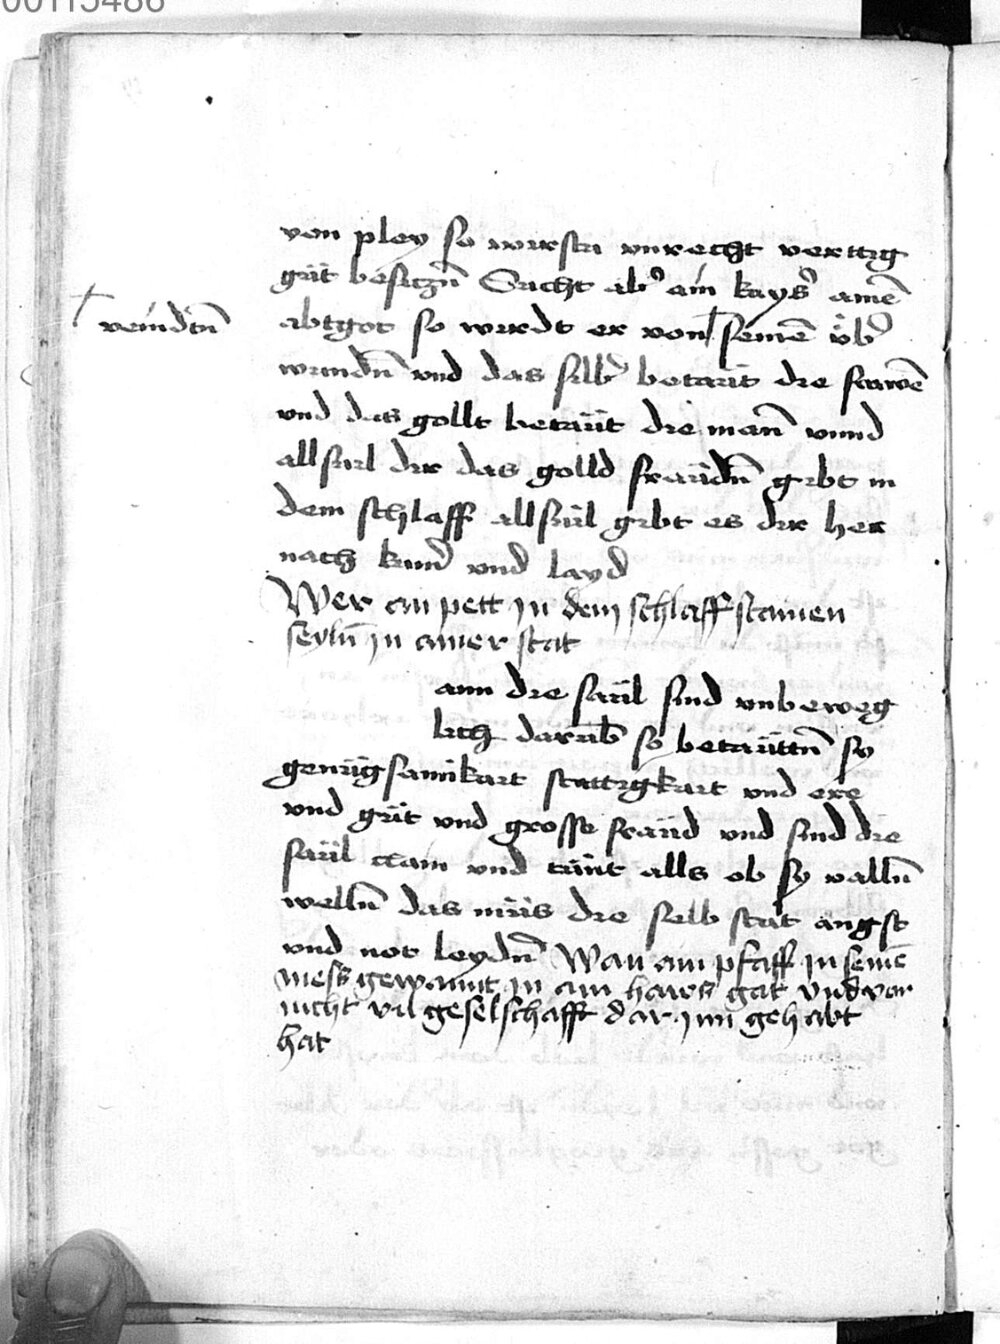 00115486
von pley so wirstu vnrecht vertig
güt besiczñ Sicht ab' ain kays' ainē
abtgot so wirdt er von seinē üb'
veindtñ
wundñ vnd das silb' betaüt die frawē
vnd das gollt betaüt die mañ vnnd
allsuil dir das golld fraüdñ gibt in
dem schlaff allsuil gibt es dir her
nach kum' vnd layd
Wer ain pett in dem schlaff stainen
seyln in ainer stat
ann die saül sind vnbeweg
lich darüb so betaüttñ sy
genügsamikait stättigkait vnd ere
vnd güt vnd grosse fraüd vnd sind die
saül clain vnd tünt alls ob sy vallñ
wellñ das müs die selb stat angst
vnd not leydñ Wan ain pfaff in seinē
messgewannt in ain haws gat vnd vor
nicht vil geselschafft dar jnn gehabt
hat